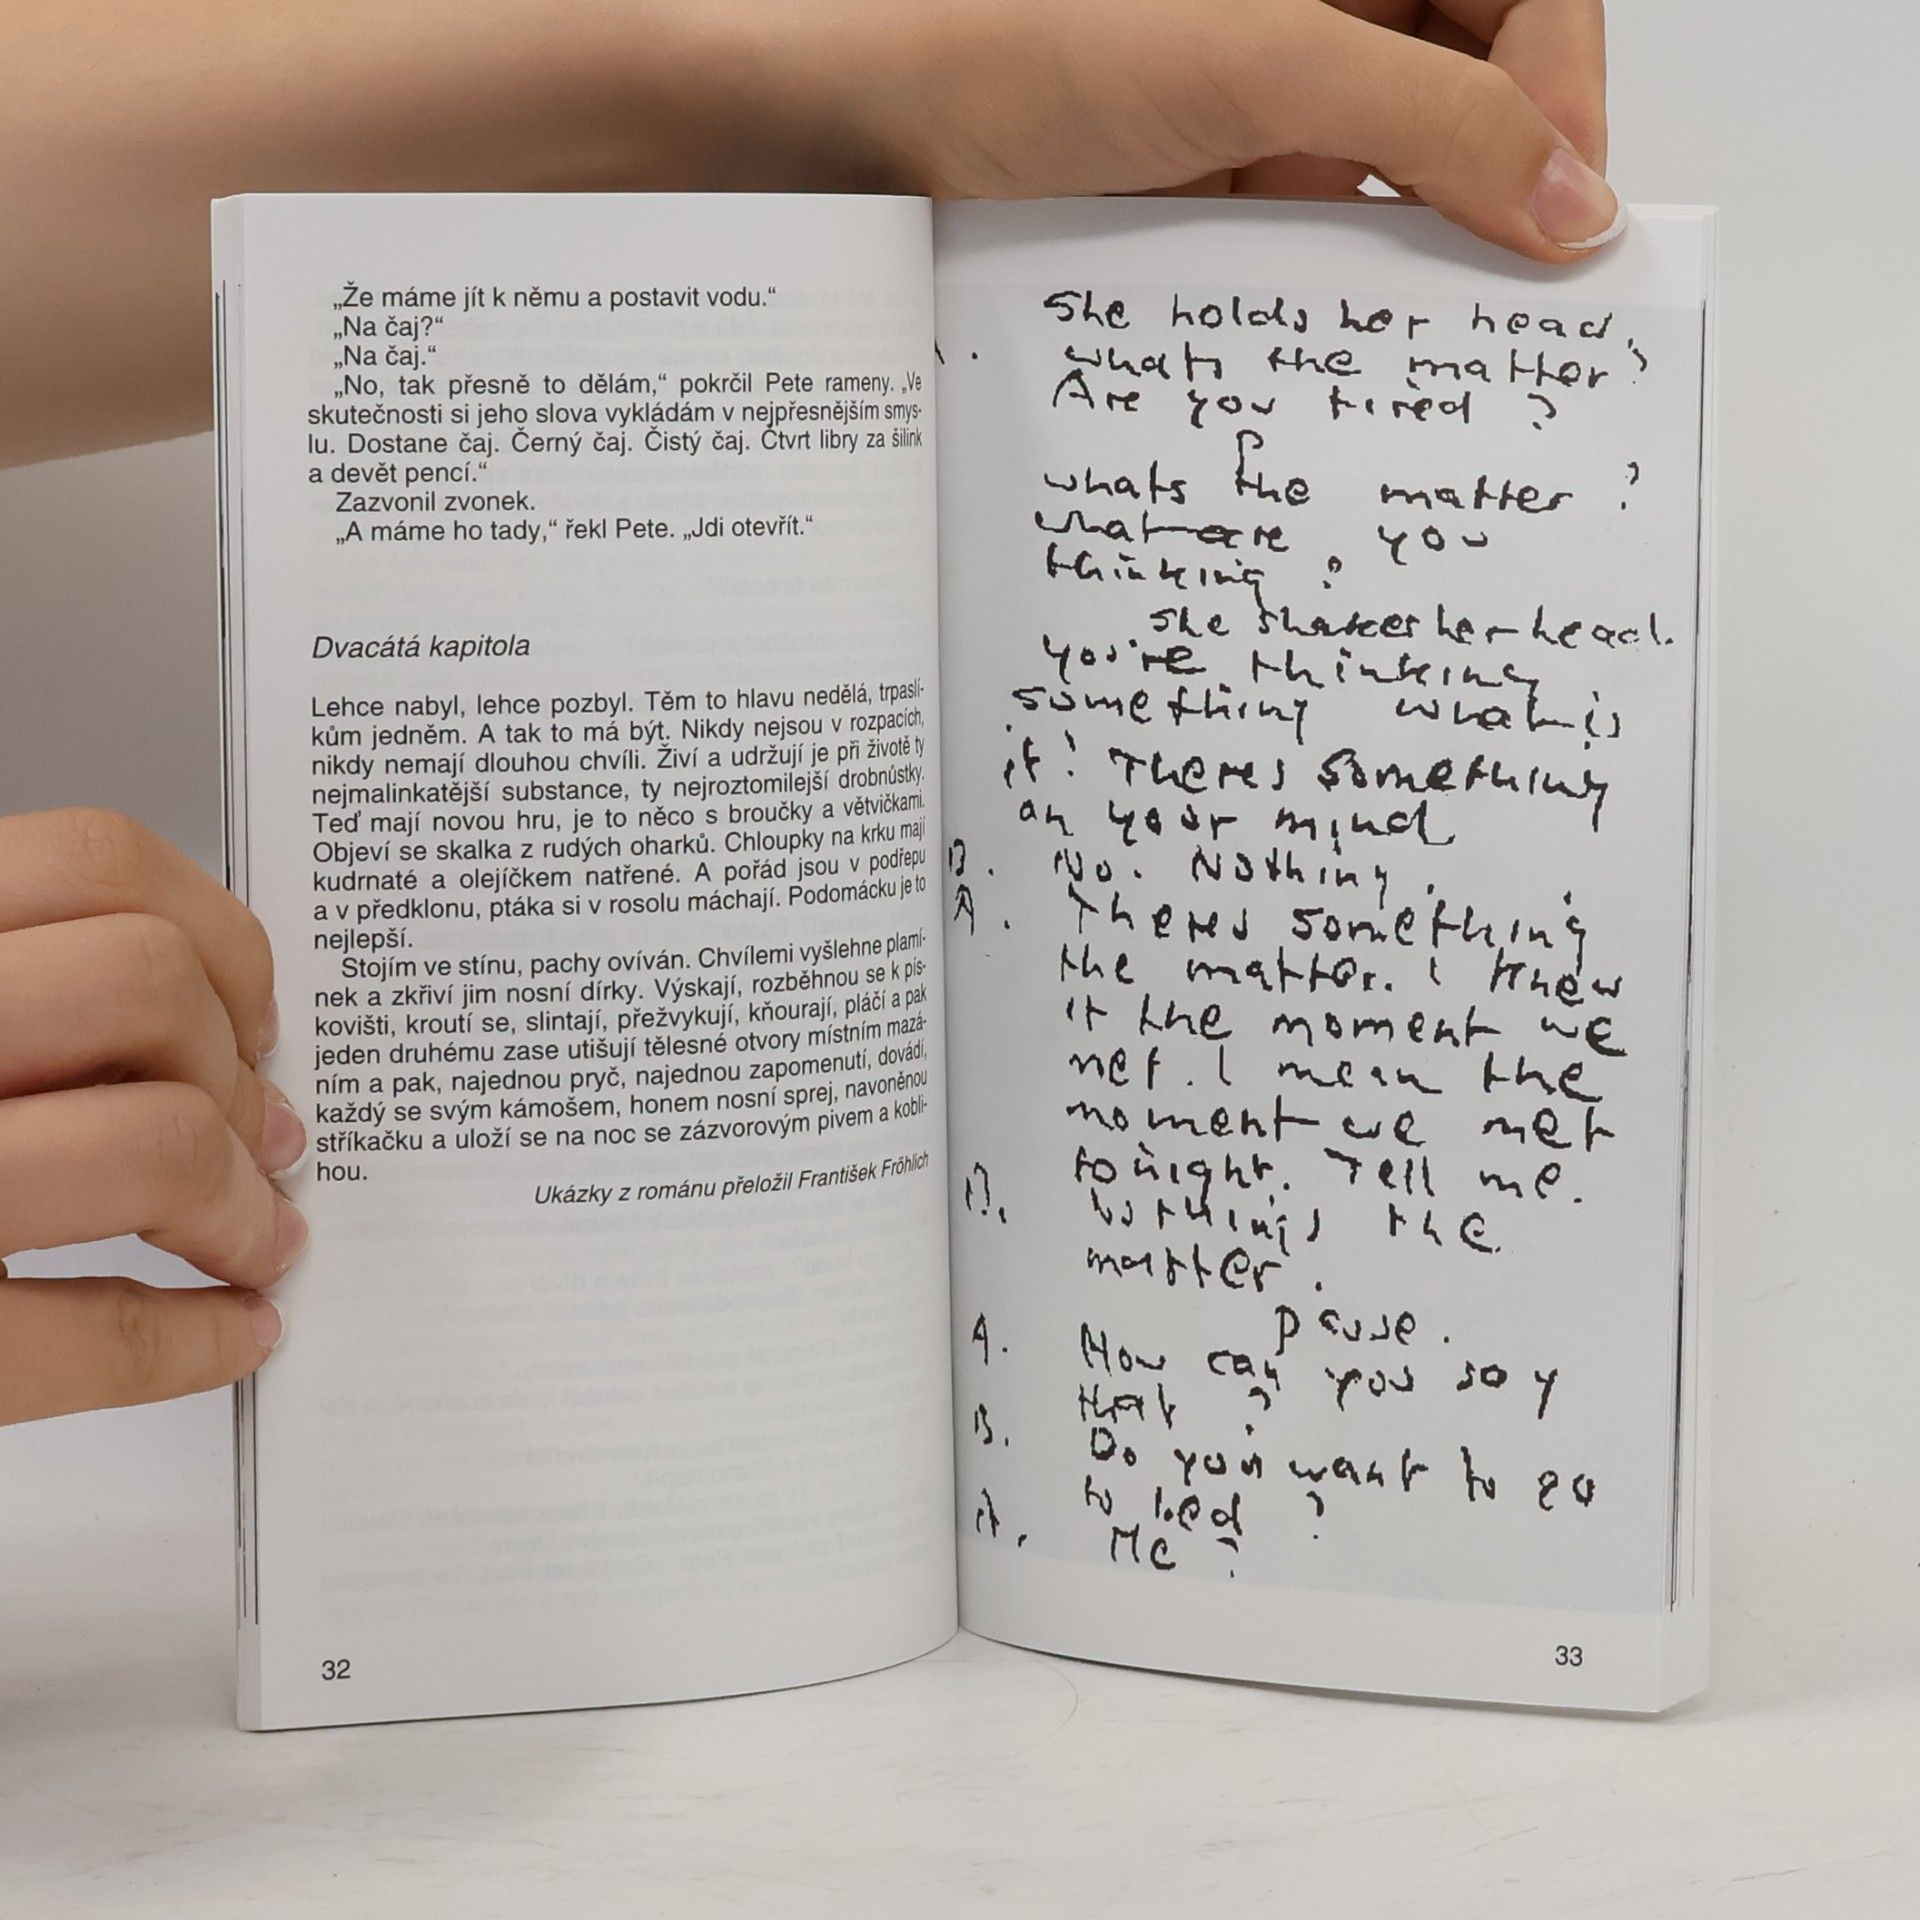 „Že máme jít k němu a postavit vodu.“
„Na čaj?“
„Na čaj.“
„No, tak přesně to dělám,“ pokrčil Pete rameny. „Ve
skutečnosti si jeho slova vykládám v nejpřesnějším smys-
lu. Dostane čaj. Černý čaj. Čistý čaj. Čtvrt libry za šilink
a devět pencí.“
Zazvonil zvonek.
„A máme ho tady,“ řekl Pete. „Jdi otevřít.“
Dvacátá kapitola
Lehce nabyl, lehce pozbyl. Těm to hlavu nedělá, trpaslí-
kům jedněm. A tak to má být. Nikdy nejsou v rozpacích,
nikdy nemají dlouhou chvíli. Živí a udržují je při životě ty
nejmalinkatější substance, ty nejroztomilejší drobnůstky.
Teď mají novou hru, je to něco s broučky a větvičkami.
Objeví se skalka z rudých oharků. Chloupky na krku mají
kudrnaté a olejíčkem natřené. A pořád jsou v podřepu
a v předklonu, ptáka si v rosolu máchají. Podomácku je to
nejlepší.
Stojím ve stínu, pachy ovíván. Chvílemi vyšlehne plamí-
nek a zkřiví jim nosní dírky. Výskají, rozběhnou se k pís-
kovišti, kroutí se, slintají, přežvykují, kňourají, pláčí a pak
jeden druhému zase utišují tělesné otvory místním mazá-
ním a pak, najednou pryč, najednou zapomenutí, dovádí,
každý se svým kámošem, honem nosní sprej, navoněnou
stříkačku a uloží se na noc se zázvorovým pivem a kobli-
hou.
Ukázky z románu přeložil František Fröhlich
32
She holds her head.
whats the matter?
Are you tired ?
P
whats the matter ?
what are you
thinking ?
She shakes her head.
you're thinking
something what is
it? Theres something
on your mind
B. No. Nothing.
A. Theres something
the matter. I knew
it the moment we
met. I mean the
moment we met
tonight. Tell me.
B. Nothings the
matter.
pause.
A. How can you say
that ?
B. Do you want to go
to bed ?
A. Me ?
33